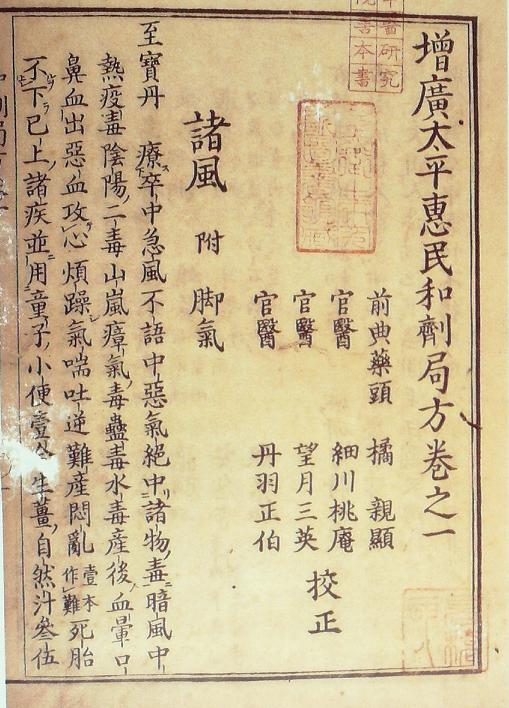 增廣太平惠民和劑局方卷之一
前典藥頭 橘 親顯
官醫 細川桃庵
官醫 望月三英
官醫 丹羽正伯
校正
諸風 附 脚氣
至寶丹 療卒中急風不語中惡氣絕中諸物毒暗風中
熱疫毒陰陽二毒山嵐瘴氣毒蠱毒水毒產後血暈口
鼻血出惡血攻心煩躁氣喘吐逆難產悶亂壹本作難死胎
不下已上諸疾並用童子小便壹合生薑自然汁叄伍
醫研究
善本書